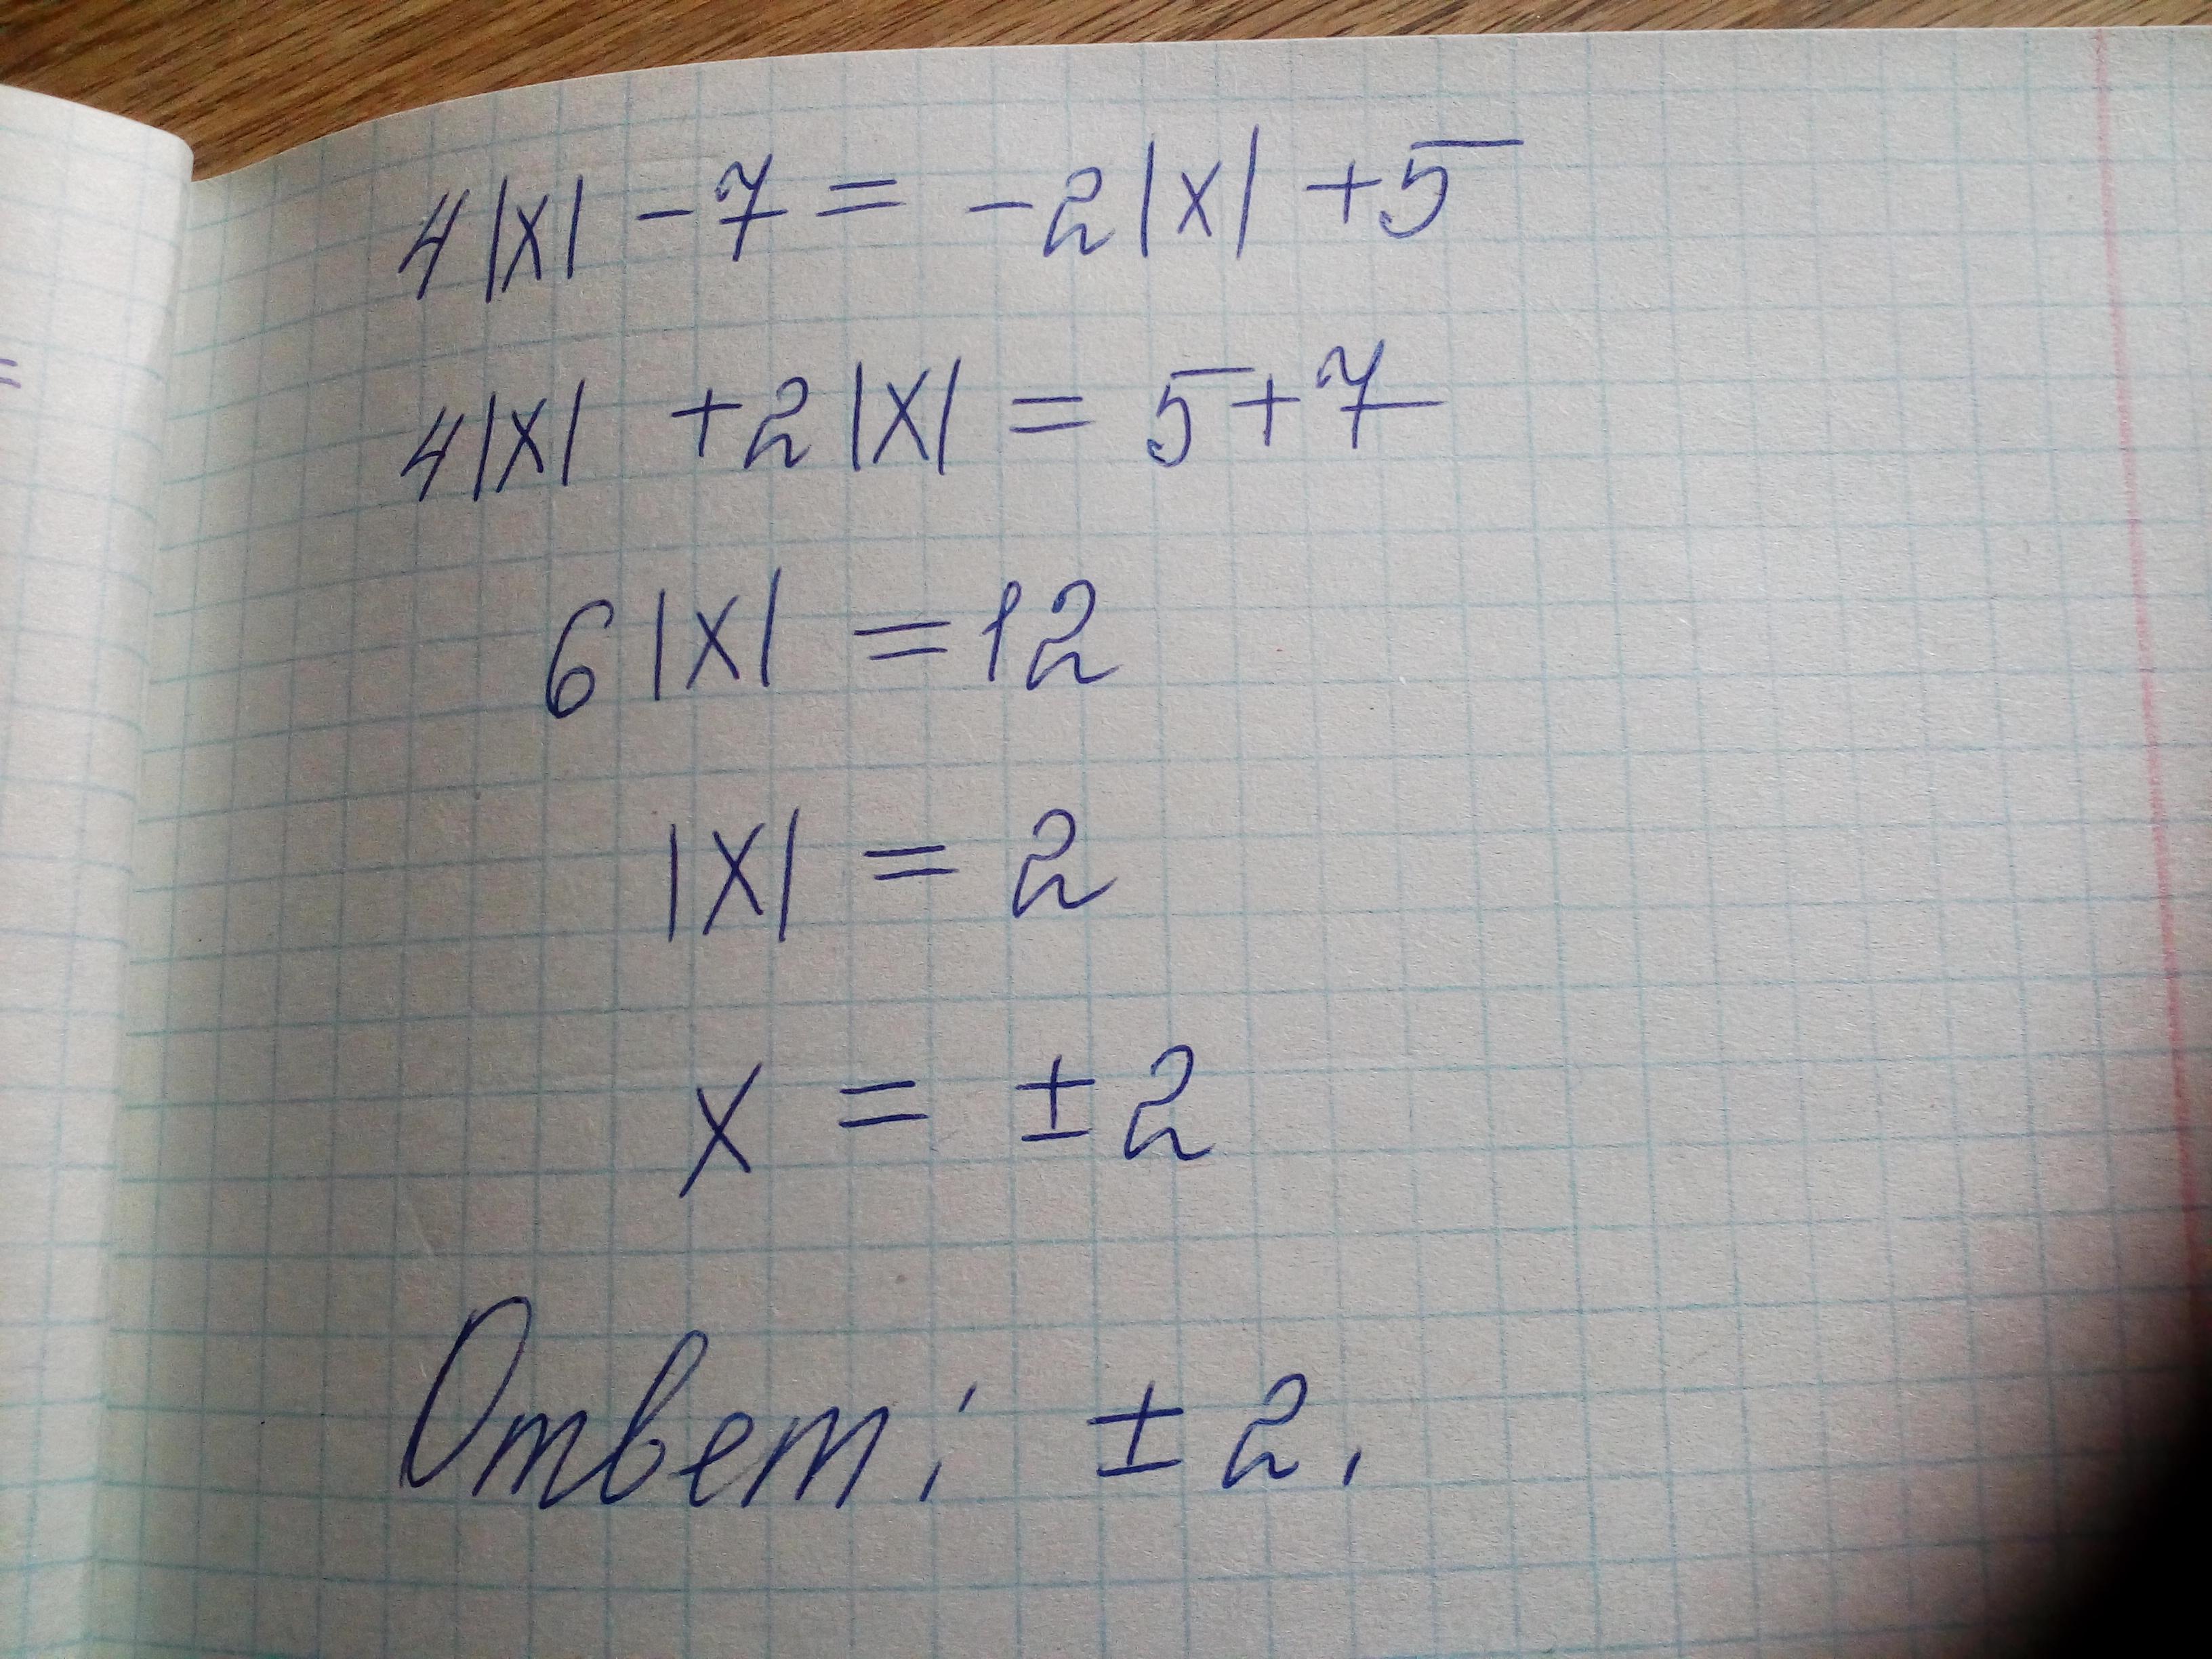 4|x| - 7 = -2|x| + 5
4|x| + 2|x| = 5 + 7
6|x| = 12
|x| = 2
x = ±2
Ответ: ±2.